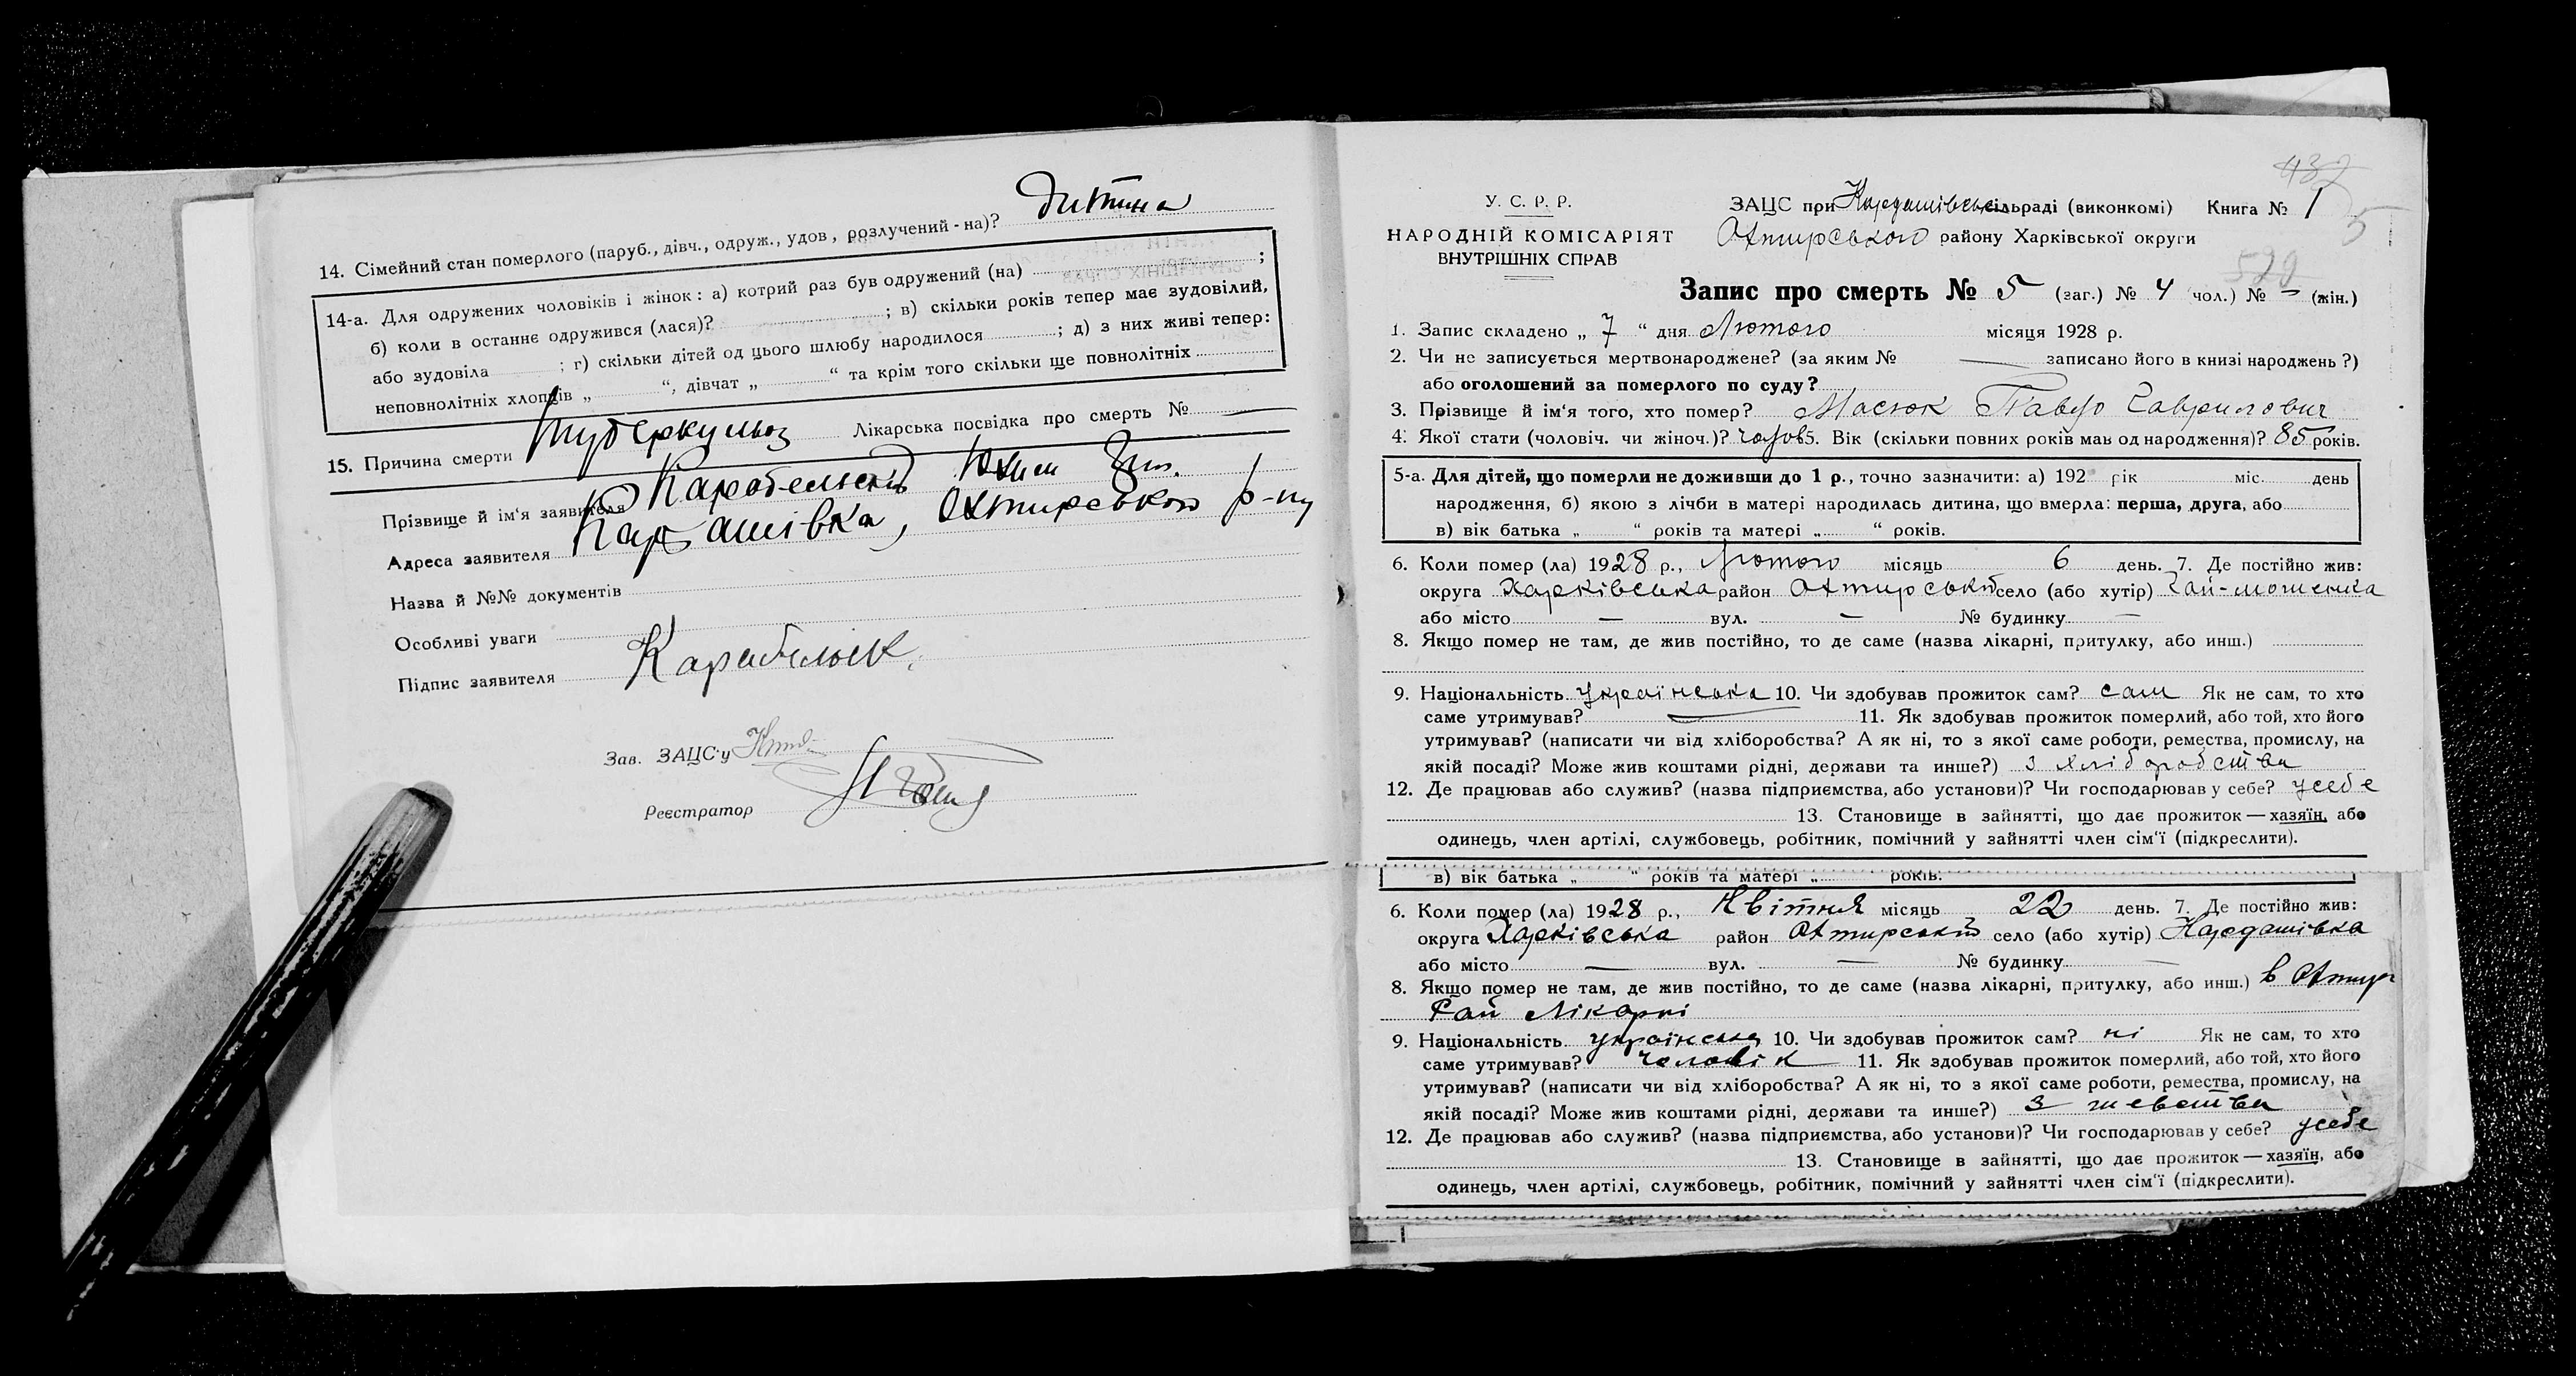 14. Сімейний стан померлого (паруб., дівч., одруж., удов, розлучений-на)? дитина
14-а. Для одружених чоловіків і жінок: а) котрий раз був одружений (на) ;
б) коли в останнє одружився (лася)? ; в) скільки років тепер має зудовілий,
або зудовіла ; г) скільки дітей од цього шлюбу народилося ; д) з них живі тепер:
неповнолітніх хлопців „ “, дівчат „ “ та крім того скільки ще повнолітніх
15. Причина смерти туберкульоз Лікарська посвідка про смерть № —
Прізвище й ім'я заявителя
Адреса заявителя Кардашівка, Охтирського р-ну
Назва й №№ документів
Особливі уваги
Підпис заявителя
Зав. ЗАЦС'у
Реєстратор
437
5
529
У. С. Р. Р.
НАРОДНІЙ КОМІСАРІЯТ
ВНУТРІШНІХ СПРАВ
ЗАЦС при Кардашівській сільраді (виконкомі) Книга № 1
Охтирського району Харківської округи
Запис про смерть № 5 (заг.) № 4 чол.) № – (жін.)
1. Запис складено „ 7 “ дня Лютого місяця 1928 р.
2. Чи не записується мертвонароджене? (за яким № — записано його в книзі народжень?)
або оголошений за померлого по суду?
3. Прізвище й ім'я того, хто помер? Масюк Павло Гаврилович
4. Якої стати (чоловіч. чи жіноч.)? чолов 5. Вік (скільки повних років мав од народження)? 85 років.
5-а. Для дітей, що померли не доживши до 1 р., точно зазначити: а) 192 рік міс. день
народження, б) якою з лічби в матері народилась дитина, що вмерла: перша, друга, або
в) вік батька „ “ років та матері „ “ років.
6. Коли помер (ла) 1928 р., Лютого місяць 6 день. 7. Де постійно жив:
округа Харківська район Охтирський село (або хутір) Гай-мошенка
або місто — вул. — № будинку —
8. Якщо помер не там, де жив постійно, то де саме (назва лікарні, притулку, або инш.)
9. Національність українська 10. Чи здобував прожиток сам? сам Як не сам, то хто
саме утримував? — 11. Як здобував прожиток померлий, або той, хто його
утримував? (написати чи від хліборобства? А як ні, то з якої саме роботи, ремества, промислу, на
якій посаді? Може жив коштами рідні, держави та инше?) з хліборобства
12. Де працював або служив? (назва підприємства, або установи)? Чи господарював у себе? усебе
13. Становище в зайнятті, що дає прожиток — хазяїн, або
одинець, член артілі, службовець, робітник, помічний у зайнятті член сім'ї (підкреслити).
в) вік батька „ “ років та матері „ років.
6. Коли помер (ла) 1928 р., Квітня місяць 22 день. 7. Де постійно жив:
округа Харківська район Охтирський село (або хутір) Кардашівка
або місто — вул. — № будинку —
8. Якщо помер не там, де жив постійно, то де саме (назва лікарні, притулку, або инш.) в Охтир
Рай лікарні
9. Національність українська 10. Чи здобував прожиток сам? ні Як не сам, то хто
саме утримував? чоловік 11. Як здобував прожиток померлий, або той, хто його
утримував? (написати чи від хліборобства? А як ні, то з якої саме роботи, ремества, промислу, на
якій посаді? Може жив коштами рідні, держави та инше?) з шевства
12. Де працював або служив? (назва підприємства, або установи)? Чи господарював у себе? усебе
13. Становище в зайнятті, що дає прожиток — хазяїн, або
одинець, член артілі, службовець, робітник, помічний у зайнятті член сім'ї (підкреслити).